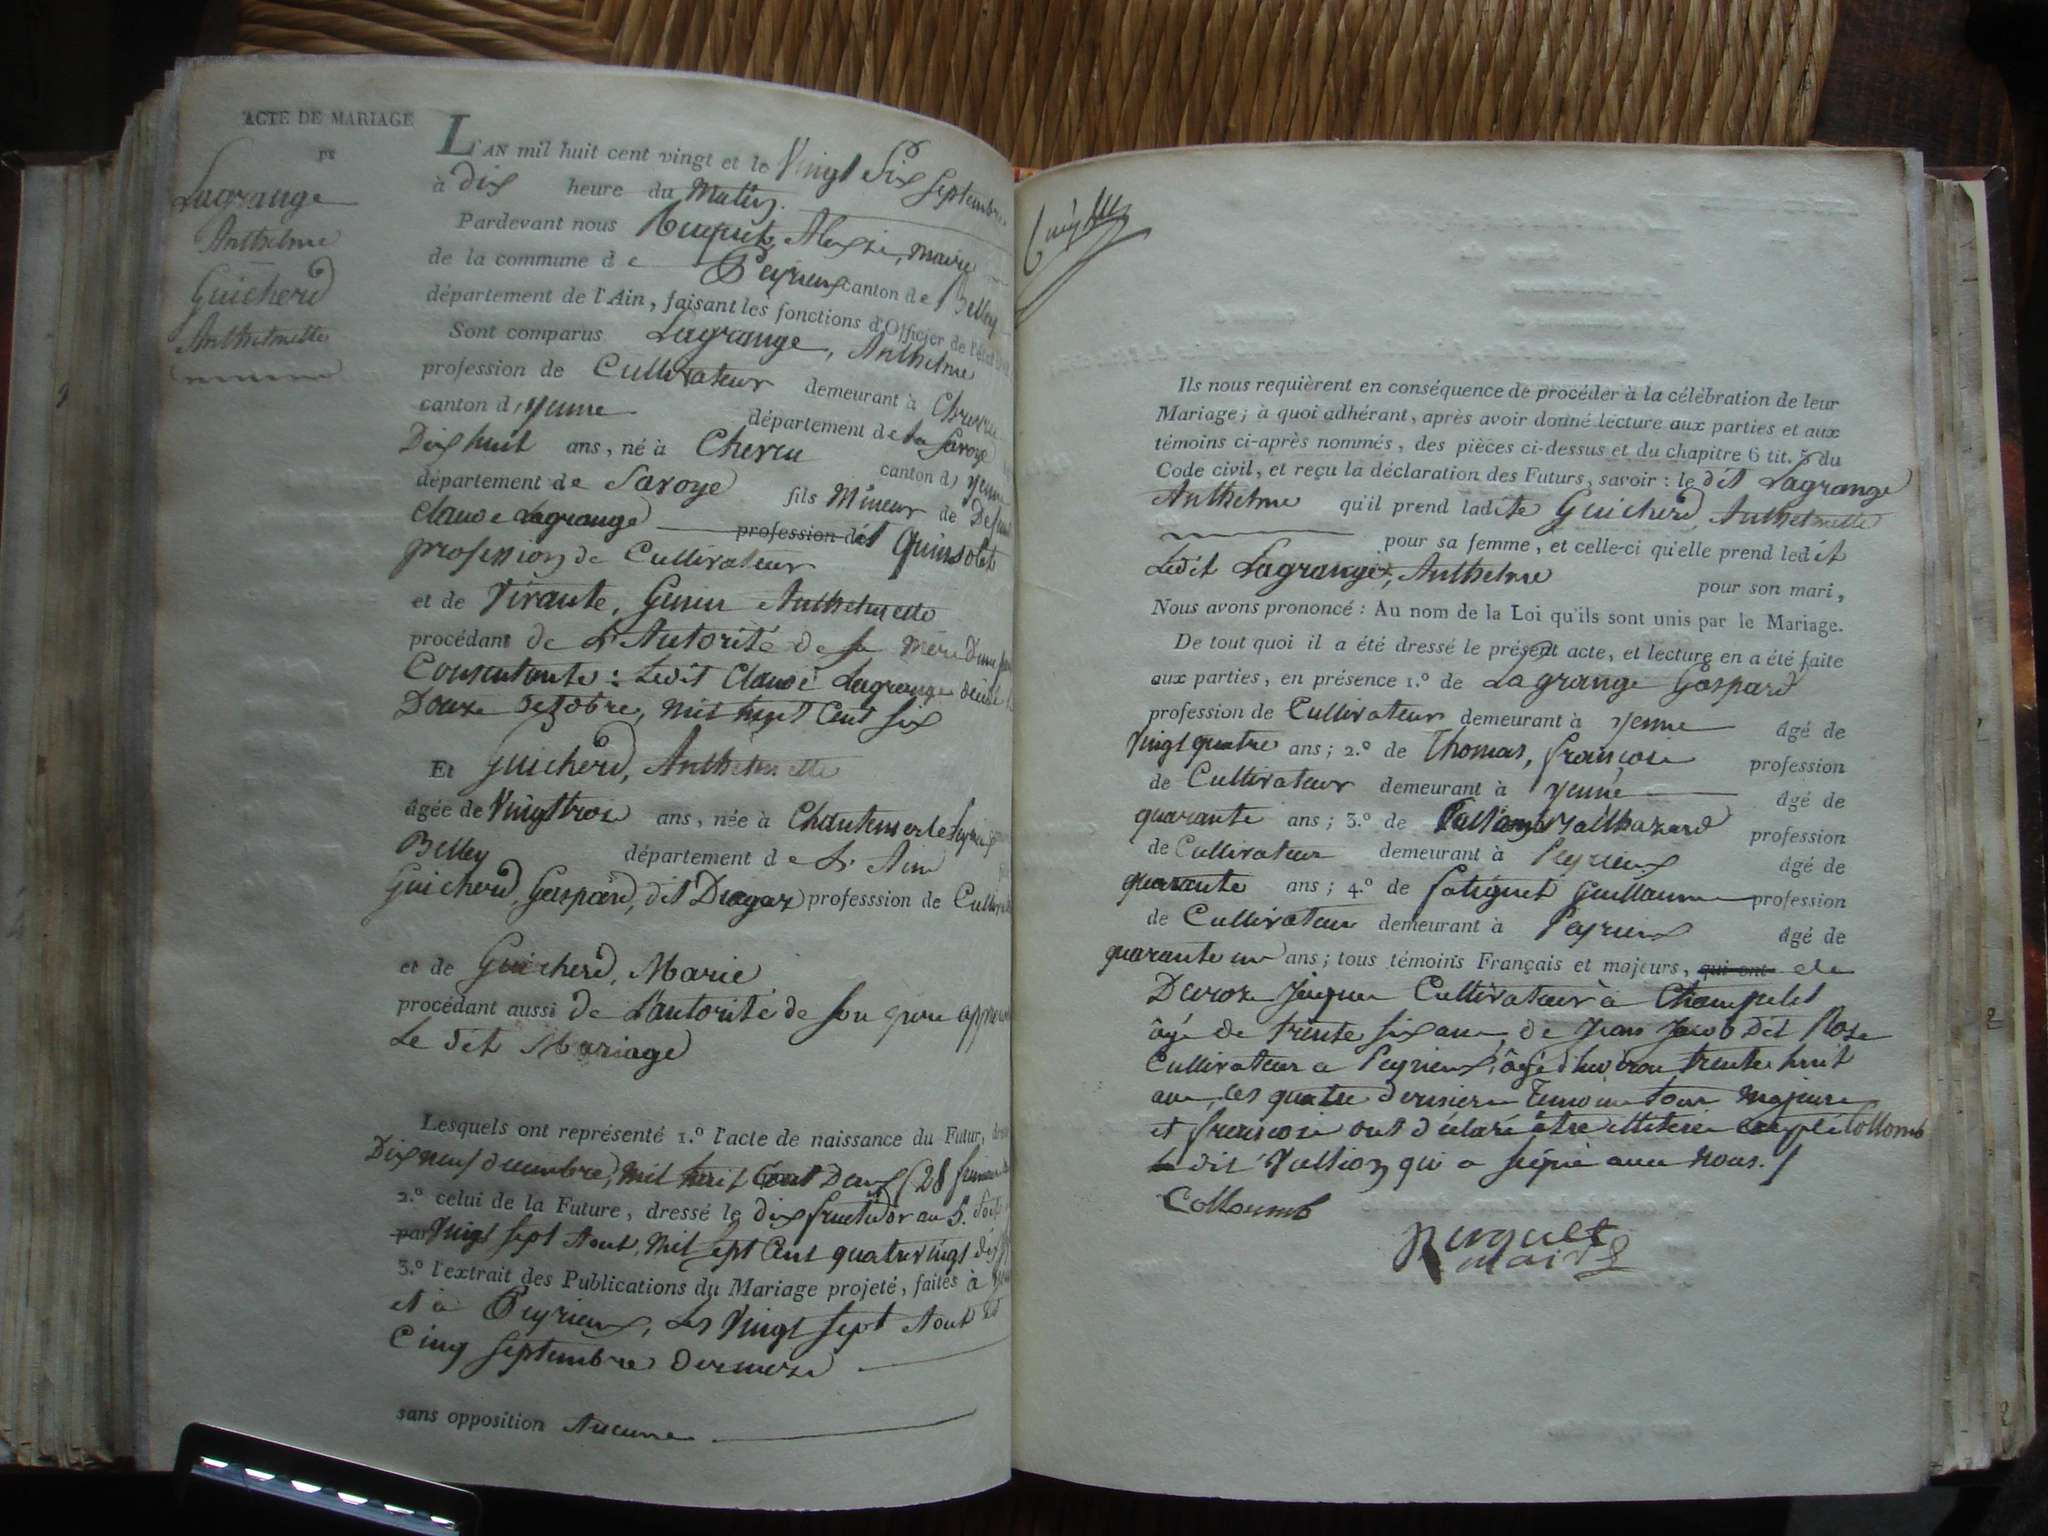 ACTE DE MARIAGE
DE
Lagrange
Anthelme
Guicherd
Anthelmette
L'AN mil huit cent vingt et le Vingt Six Septembre
à dix heure du Matin.
Pardevant nous Alexis, maire
de la commune de Peyrieux canton de Belley
département de l'Ain, faisant les fonctions d'Officier de l'état
Sont comparus Lagrange, Anthelme
profession de Cultivateur demeurant à
canton d, yenne département de la Savoye
Dix huit ans, né à canton d, yenne
département de Savoye fils Mineur de
Claude Lagrange profession dit Quinsolet
profession de Cultivateur
et de Vivante, Anthelmette
procédant de L'Autorité de sa mère
Consentante : Ledit Claude Lagrange
Douze octobre, mil sept Cent six
Et Guicherd, Anthelmette
âgée de Vingt trois ans, née à
Belley département de L'Ain
Guicherd, Gaspard, dit professsion de
et de Guicherd, Marie
procédant aussi de L'autorité de son père
Le dit Mariage
Lesquels ont représenté 1.° l'acte de naissance du Futur,
Dix neuf decembre, mil huit Cent Deux (28
2.° celui de la Future, dressé le dix fructidor an 5.
par Vingt sept Aout, mil sept Cent quatre vingt
3.° l'extrait des Publications du Mariage projeté, faites à
et à Peyrieux, Les Vingt sept Aout et
Cinq Septembre
sans opposition Aucune
Ils nous requièrent en conséquence de procéder à la célébration de leur
Mariage; à quoi adhérant, après avoir donné lecture aux parties et aux
témoins ci-après nommés, des pièces ci-dessus et du chapitre 6 tit. 5 du
Code civil, et reçu la déclaration des Futurs, savoir : le dit Lagrange
Anthelme qu'il prend ladite Guicherd, Anthelmette
pour sa femme, et celle-ci qu'elle prend ledit
Ledit Lagrange, Anthelme pour son mari,
Nous avons prononcé : Au nom de la Loi qu'ils sont unis par le Mariage.
De tout quoi il a été dressé le présent acte, et lecture en a été faite
aux parties, en présence 1.° de Lagrange Gaspard
profession de Cultivateur demeurant à yenne âgé de
Vingt quatre ans; 2.° de Thomas, françois profession
de Cultivateur demeurant à yenne âgé de
quarante ans; 3.° de profession
de Cultivateur demeurant à Peyrieux âgé de
quarante ans; 4.° de Guillaume profession
de Cultivateur demeurant à Peyrieux âgé de
quarante un ans; tous témoins Français et majeurs, qui ont de
Cultivateur à
âgé de trente six ans, de Jean Jacob dit Roze
Cultivateur a Peyrieux, âgé d'environ trente huit
ans, Les quatre derniers Temoins tous majeurs
et françois ont déclaré être illiterés excepté Collomb
dit Vullion qui a signé avec Nous.
Collomb
maire